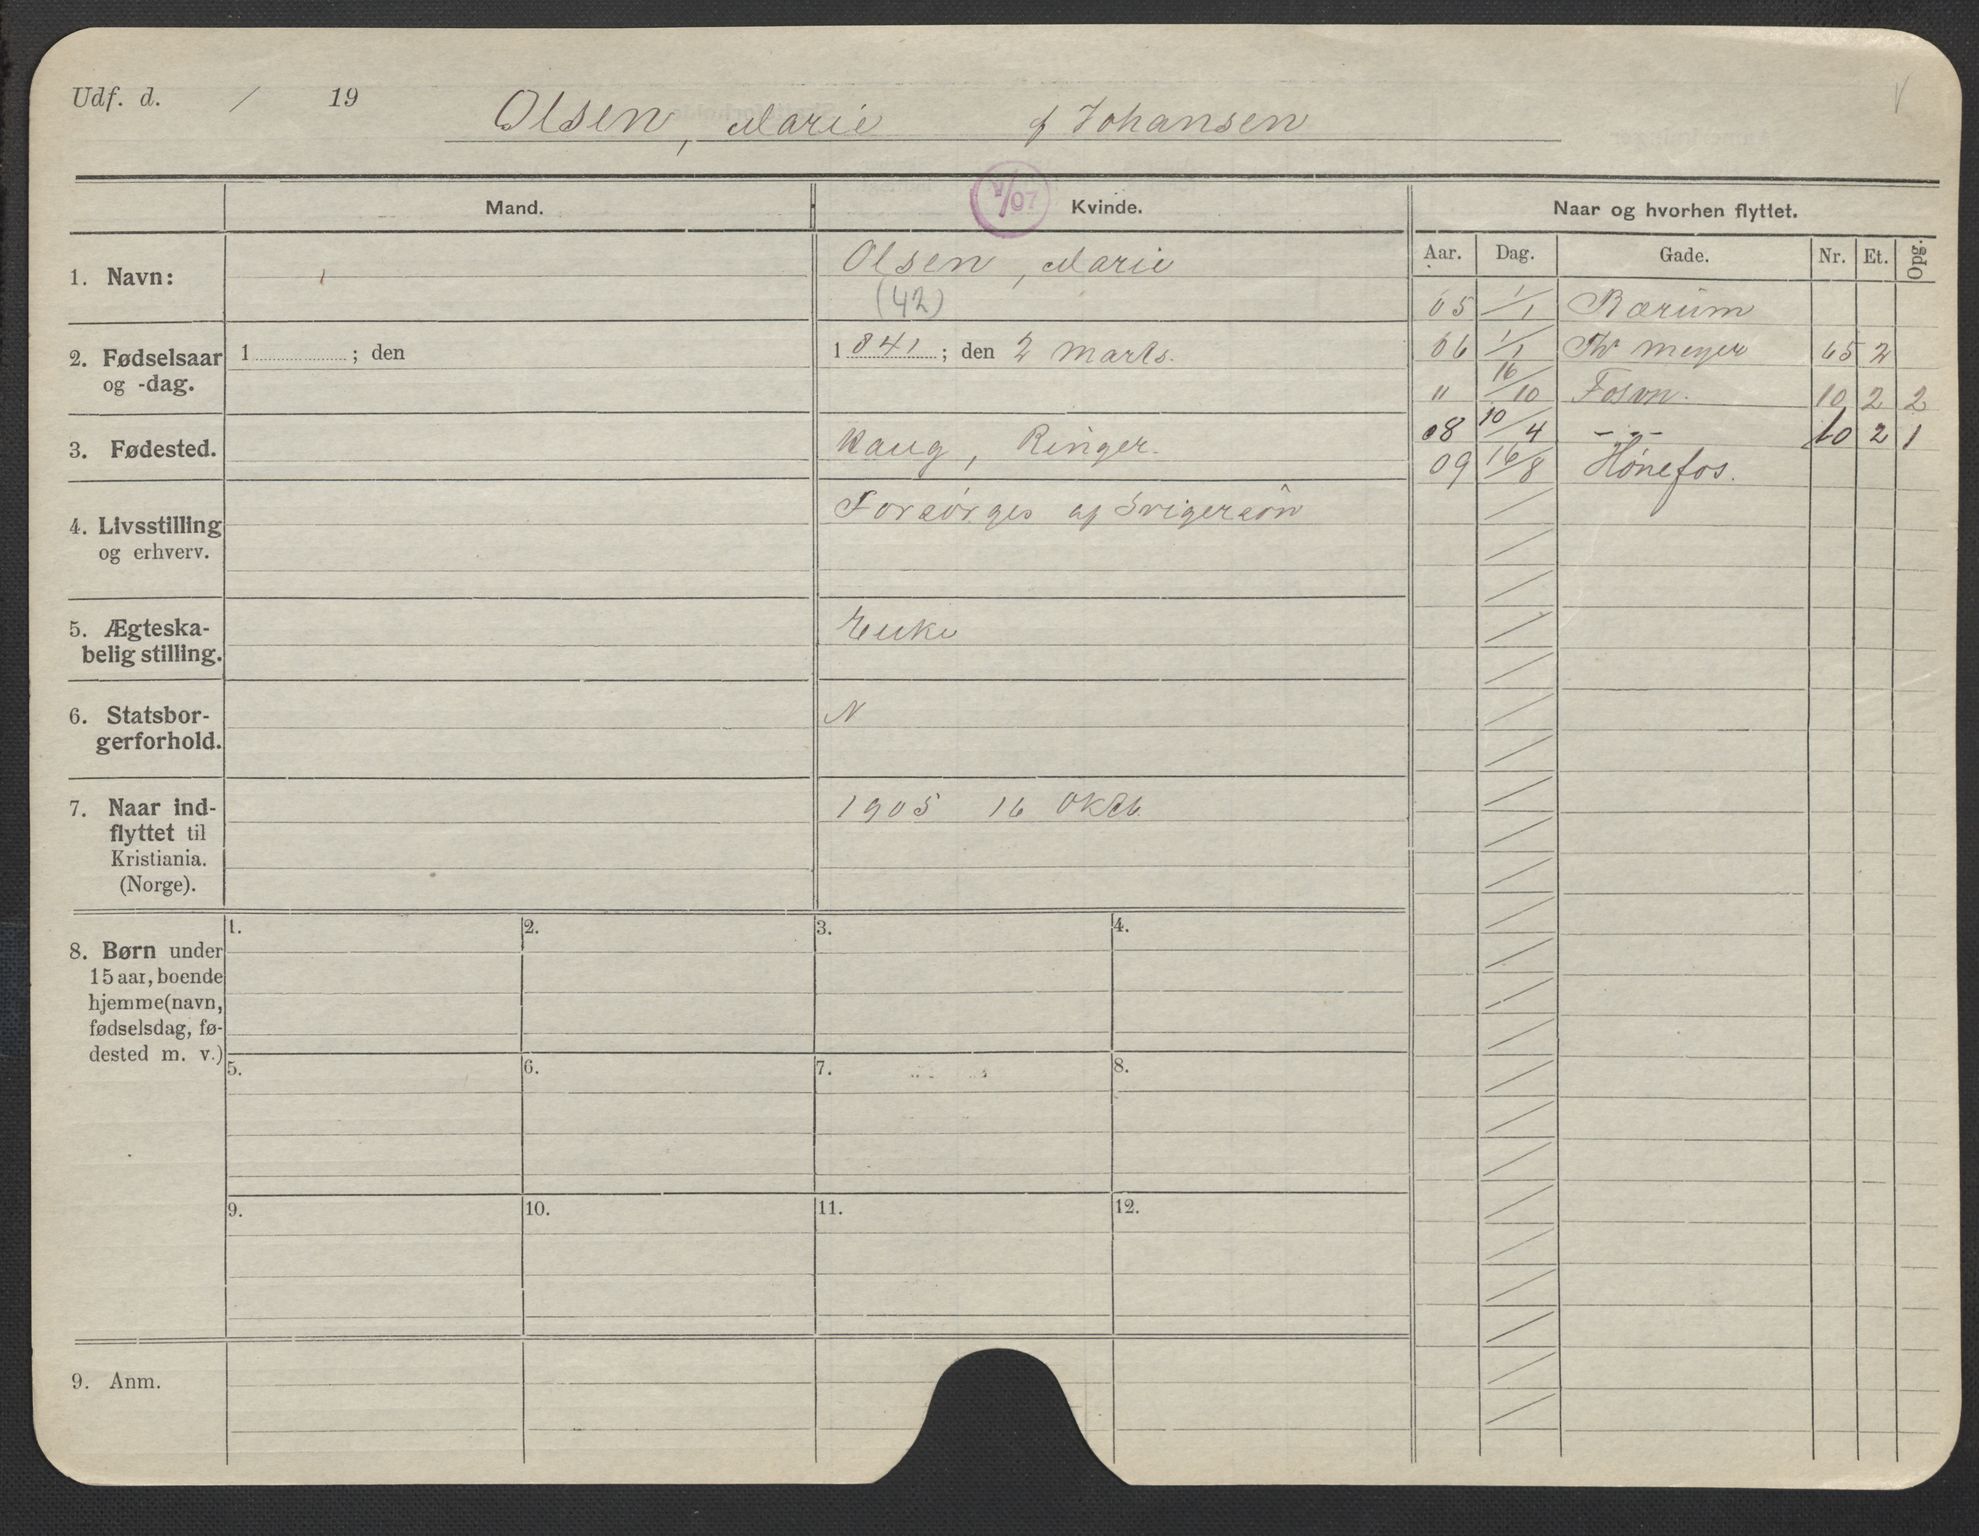 Udf. d. / 19
Olsen, Marie f Johansen
Mand.
V/07
Kvinde.
Naar og hvorhen flyttet.
Aar. Dag. Gade. Nr. Et. Opg.
1. Navn:
Olsen, Marie
(42)
2. Fødselsaar
og -dag.
1 ; den
1841 ; den 2 Marts.
3. Fødested.
Haug, Ringer.
4. Livsstilling
og erhverv.
Forsørges af Svigersøn
5. Ægteska-
belig stilling.
Enke
6. Statsbor-
gerforhold.
N
7. Naar ind-
flyttet til
Kristiania.
(Norge).
1905 16 Oktb.
8. Børn under
15 aar, boende
hjemme (navn,
fødselsdag, fø-
dested m. v.)
1. 2. 3. 4.
5. 6. 7. 8.
9. 10. 11. 12.
9. Anm.
05 1/1 Bærum
06 1/1 Th Meyer 65 2
" 16/10 Fosvn. 10 2 2
08 10/4 -"- 10 2 1
09 16/8 Hønefos.